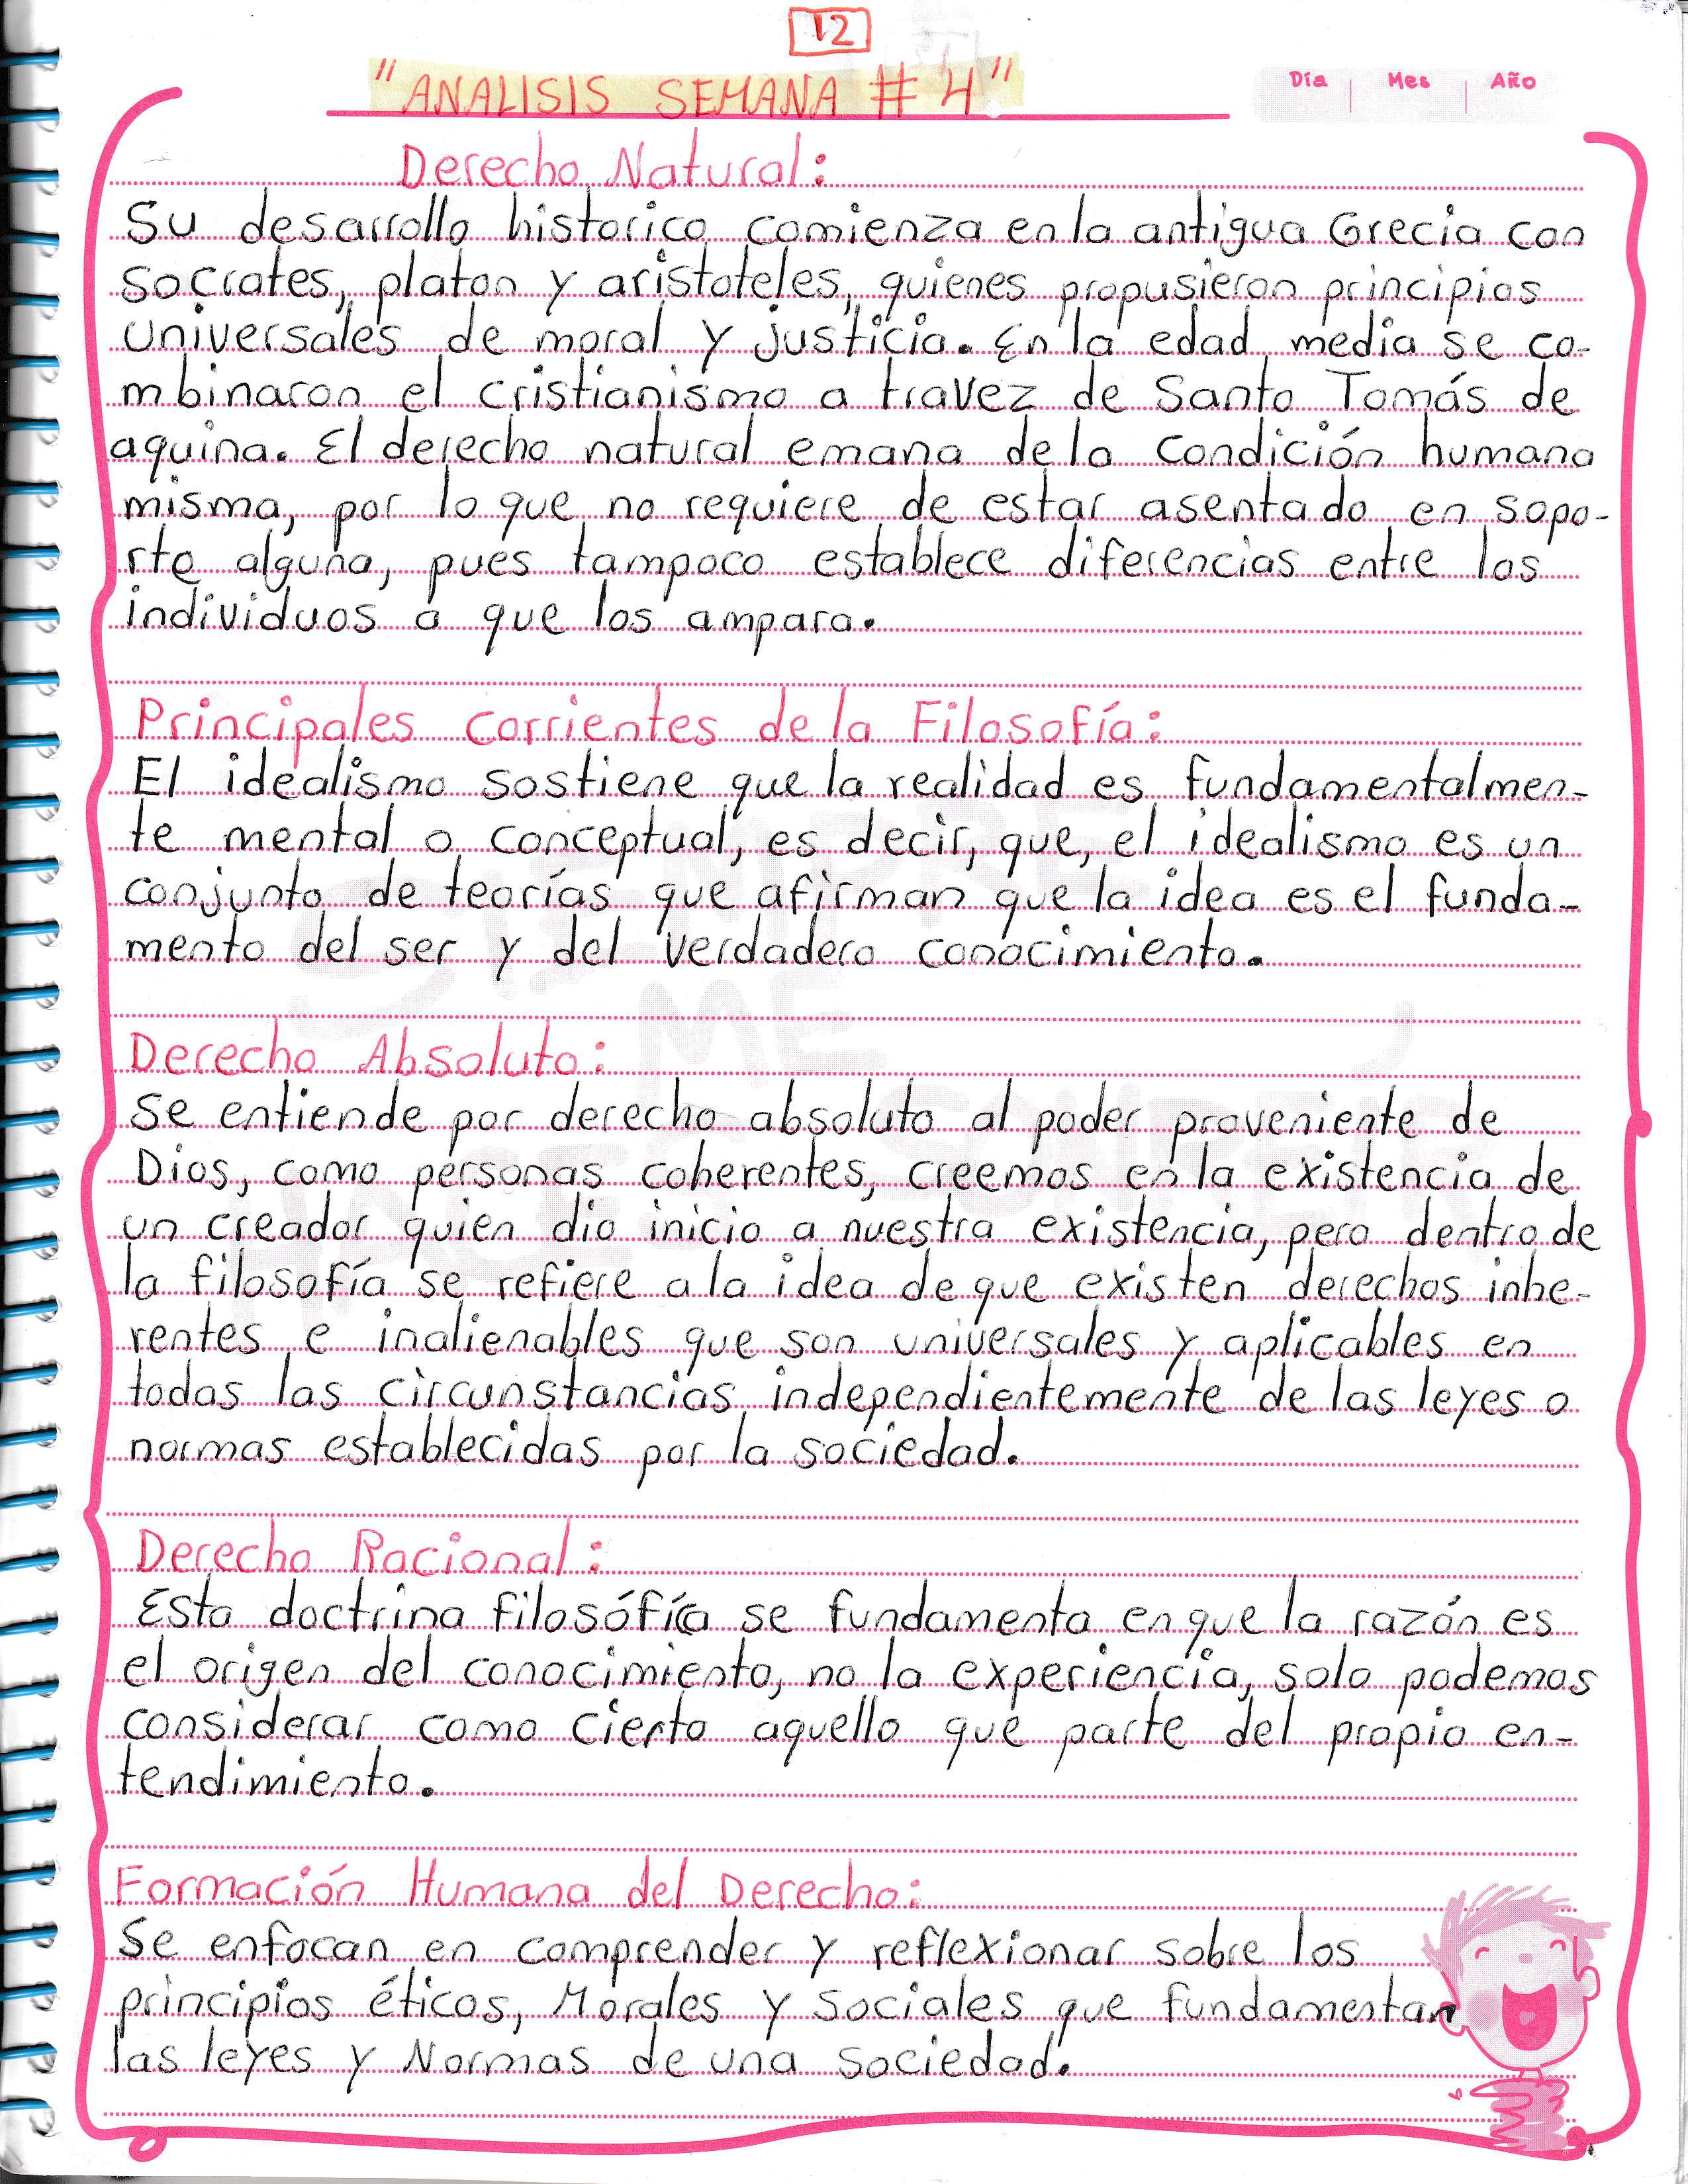 12
"ANALISIS SEMANA # 4"
Día Mes Año
Derecho Natural:
Su desarrollo historico comienza en la antigua Grecia con
socrates, platon y aristoteles, quienes propusieron principios
universales de moral y justicia. En la edad media se co-
mbinaron el cristianismo a travez de Santo Tomás de
aquina. El derecho natural emana de la condición humana
misma, por lo que no requiere de estar asentado en sopo-
rte alguna, pues tampoco establece diferencias entre los
individuos a que los ampara.
Principales corrientes de la Filosofía:
El idealismo sostiene que la realidad es fundamentalmen-
te mental o conceptual, es decir, que, el idealismo es un
conjunto de teorías que afirman que la idea es el funda-
mento del ser y del verdadero conocimiento.
Derecho Absoluto:
Se entiende por derecho absoluto al poder proveniente de
Dios, como personas coherentes, creemos en la existencia de
un creador quien dio inicio a nuestra existencia, pero dentro de
la filosofía se refiere a la idea de que existen derechos inhe-
rentes e inalienables que son universales y aplicables en
todas las circunstancias independientemente de las leyes o
normas establecidas por la sociedad.
Derecho Racional:
Esta doctrina filosófíca se fundamenta en que la razón es
el origen del conocimiento, no la experiencia, solo podemos
considerar como cierto aquello que parte del propio en-
tendimiento.
Formación Humana del Derecho:
Se enfocan en comprender y reflexionar sobre los
principios éticos, Morales y sociales que fundamentan
las leyes y Normas de una sociedad.